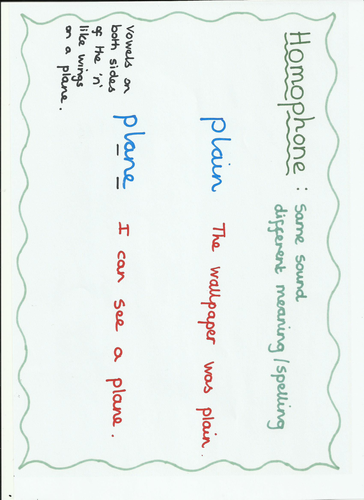 Homophone : same sound
different meaning/spelling
plain The wallpaper was plain.
plane I can see a plane.
vowels on
both sides
of the 'n'
like wings
on a plane.